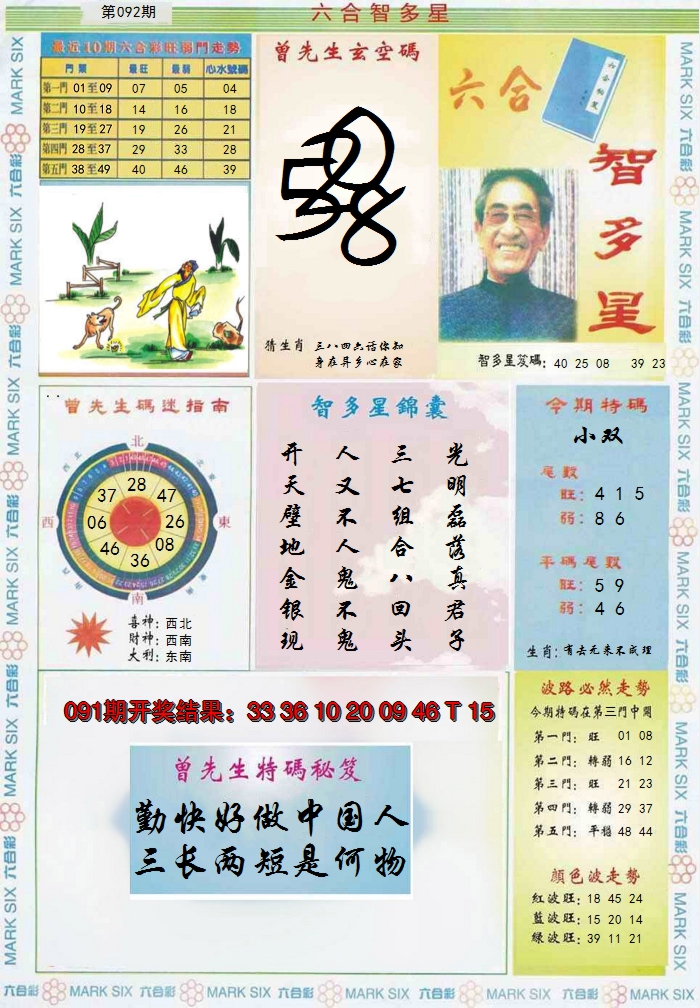 第092期
六合智多星
最近10期六合彩旺弱門走勢
門類 最旺 最弱 心水號碼
第一門 01至09 07 05 04
第二門 10至18 14 16 18
第三門 19至27 19 26 21
第四門 28至37 29 33 28
第五門 38至49 40 46 39
曾先生玄空碼
猜生肖 三八四六话你知
身在异乡心在家
六合
智多星
智多星笈碼: 40 25 08 39 23
曾先生碼迷指南
北
西
東
南
28
47
26
08
36
46
06
37
喜神: 西北
財神: 西南
大利: 东南
智多星錦囊
开天壁地金银现
人又不人鬼不鬼
三七组合八回头
光明磊落真君子
今期特碼
小双
尾数
旺: 4 1 5
弱: 8 6
平碼尾数
旺: 5 9
弱: 4 6
生肖: 有去无来不成理
091期开奖结果: 33 36 10 20 09 46 T 15
曾先生特碼秘笈
勤快好做中国人
三长两短是何物
波路必然走勢
今期特碼在第三門中開
第一門: 旺 01 08
第二門: 轉弱 16 12
第三門: 旺 21 23
第四門: 轉弱 29 37
第五門: 平穩 48 44
顏色波走勢
紅波旺: 18 45 24
藍波旺: 15 20 14
綠波旺: 39 11 21
MARK SIX 六合彩